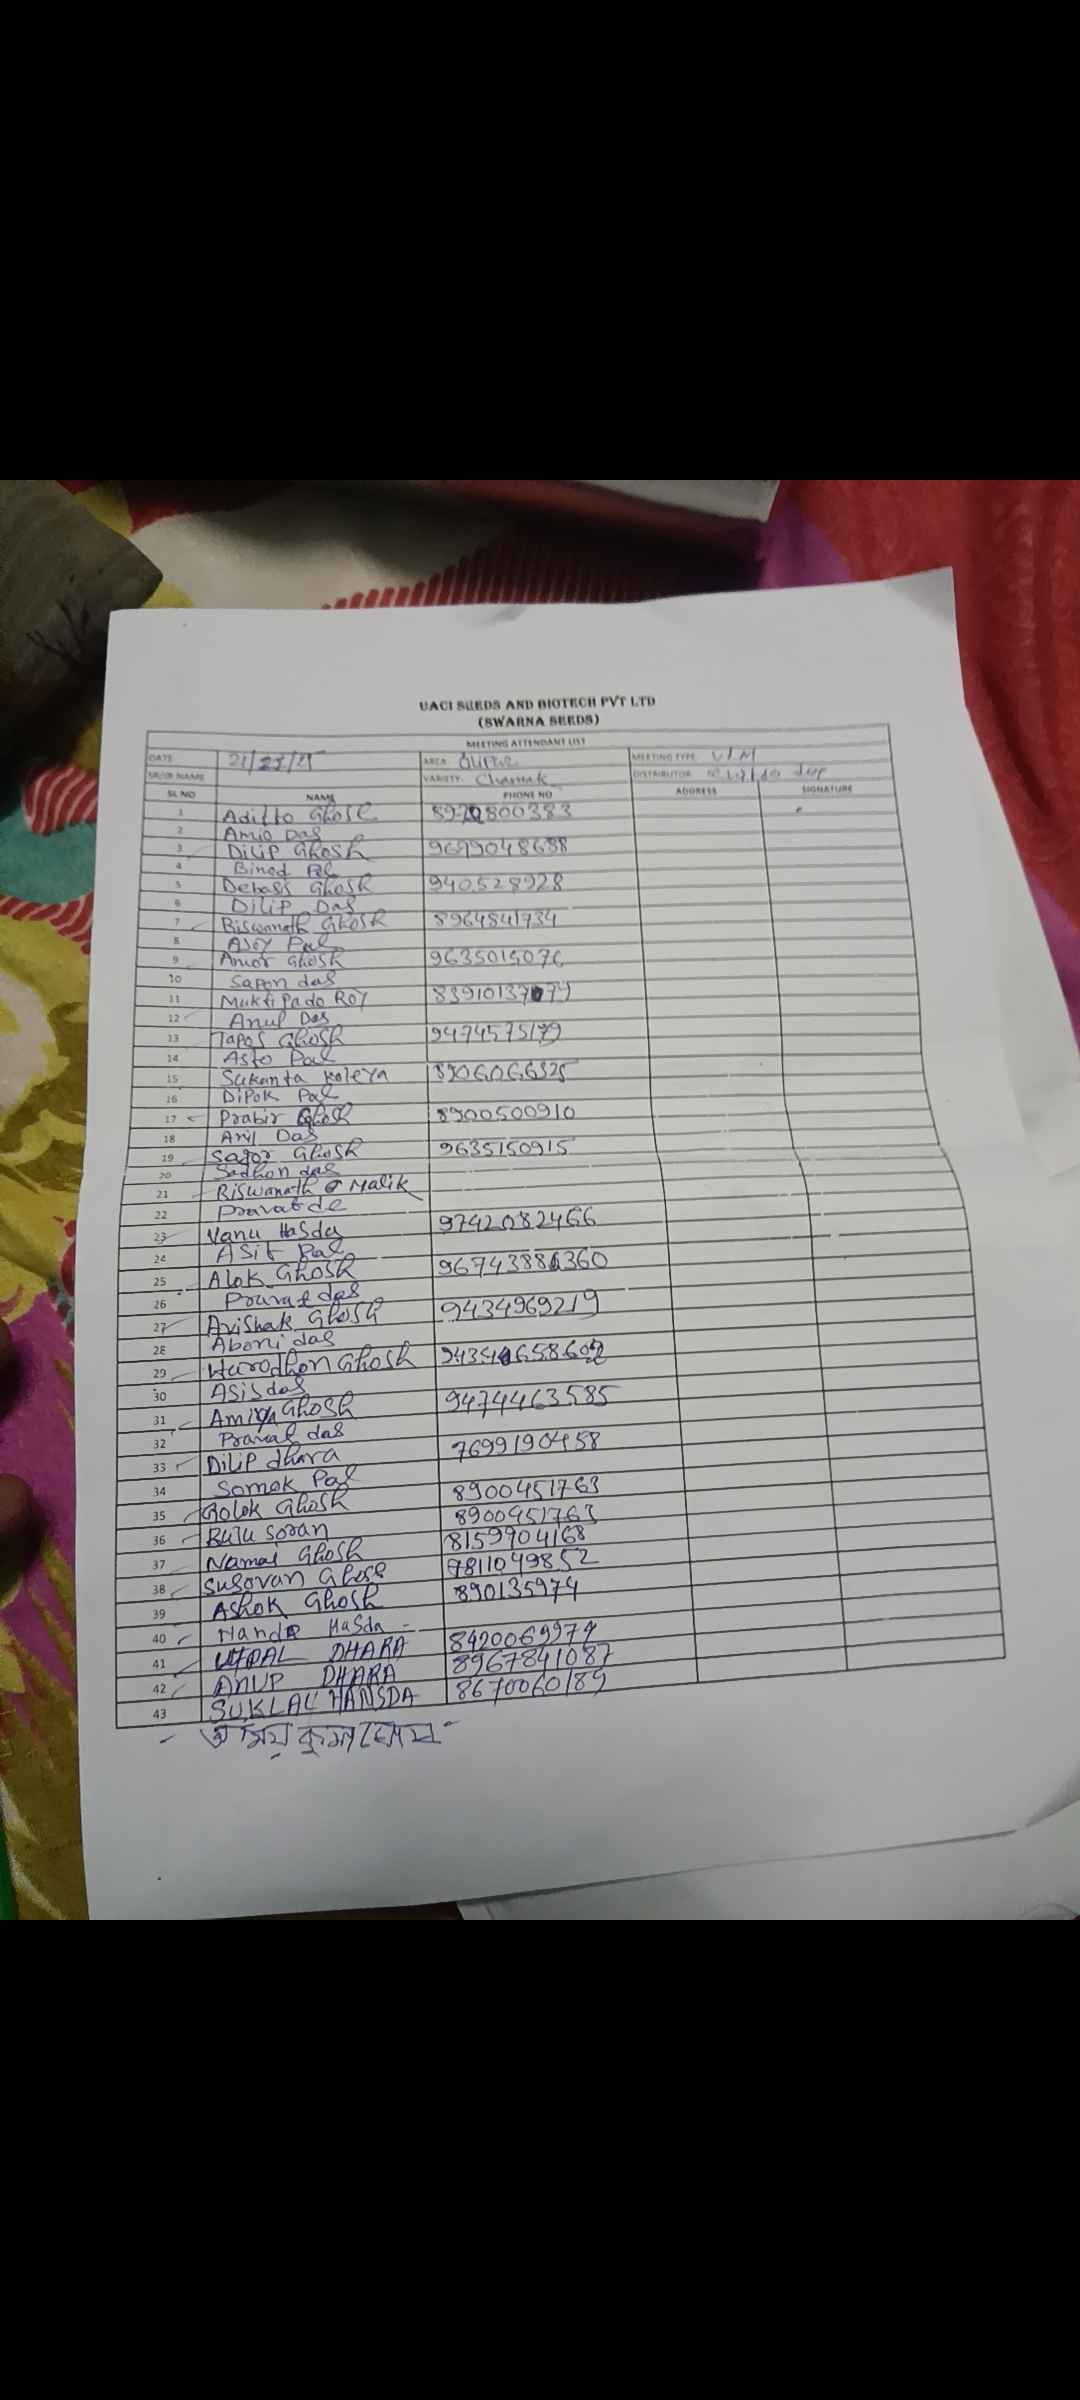 UACI SEEDS AND BIOTECH PVT LTD
(SWARNA SEEDS)
MEETING ATTENDANT LIST
DATE AREA MEETING TYPE V/M
SR/JR NAME VARIETY Chamak DISTRIBUTOR
SL NO NAME PHONE NO ADDRESS SIGNATURE
1 Aditto Ghose
2 Amio Das
3 Dilip Ghosh 9679048688
4 Binod Pal
5 Debass Ghosh 940528928
6 Dilip Das
7 Biswanath Ghosh 8964841734
8 Asoy Pal
9 Amor Ghosh
10 Sapon das
11 Muktipado Roy
12 Anup Das
13 Tapos Ghosh
14 Asto Pal
15 Sukanta Koleya
16 Dipok Pal
17 Prabir Ghosh 8900500910
18 Anil Das
19 Sagor Ghosh 9635150915
20 Sadhon das
21 Biswanath Malik
22 Pravat de
23 Vanu Hasda 9742082466
24 Asit Pal
25 Alok Ghosh
26 Pravat das
27 Avishak Ghosh 9434969219
28 Aboni das
29 Harodhon Ghosh
30 Asis das
31 Amiya Ghosh 9474463585
32 Pravat das
33 Dilip dhara 7699190458
34 Somok Pal 8900451763
35 Golok Ghosh 8900451763
36 Buju soran 8159904168
37 Namai Ghosh 7811049852
38 Susovan Ghose 890135974
39 Ashok Ghosh
40 Nanda Hasda - 8420069974
41 UTPAL DHARA 8967841087
42 ANUP DHARA 8670060189
43 SUKLAL HANSDA